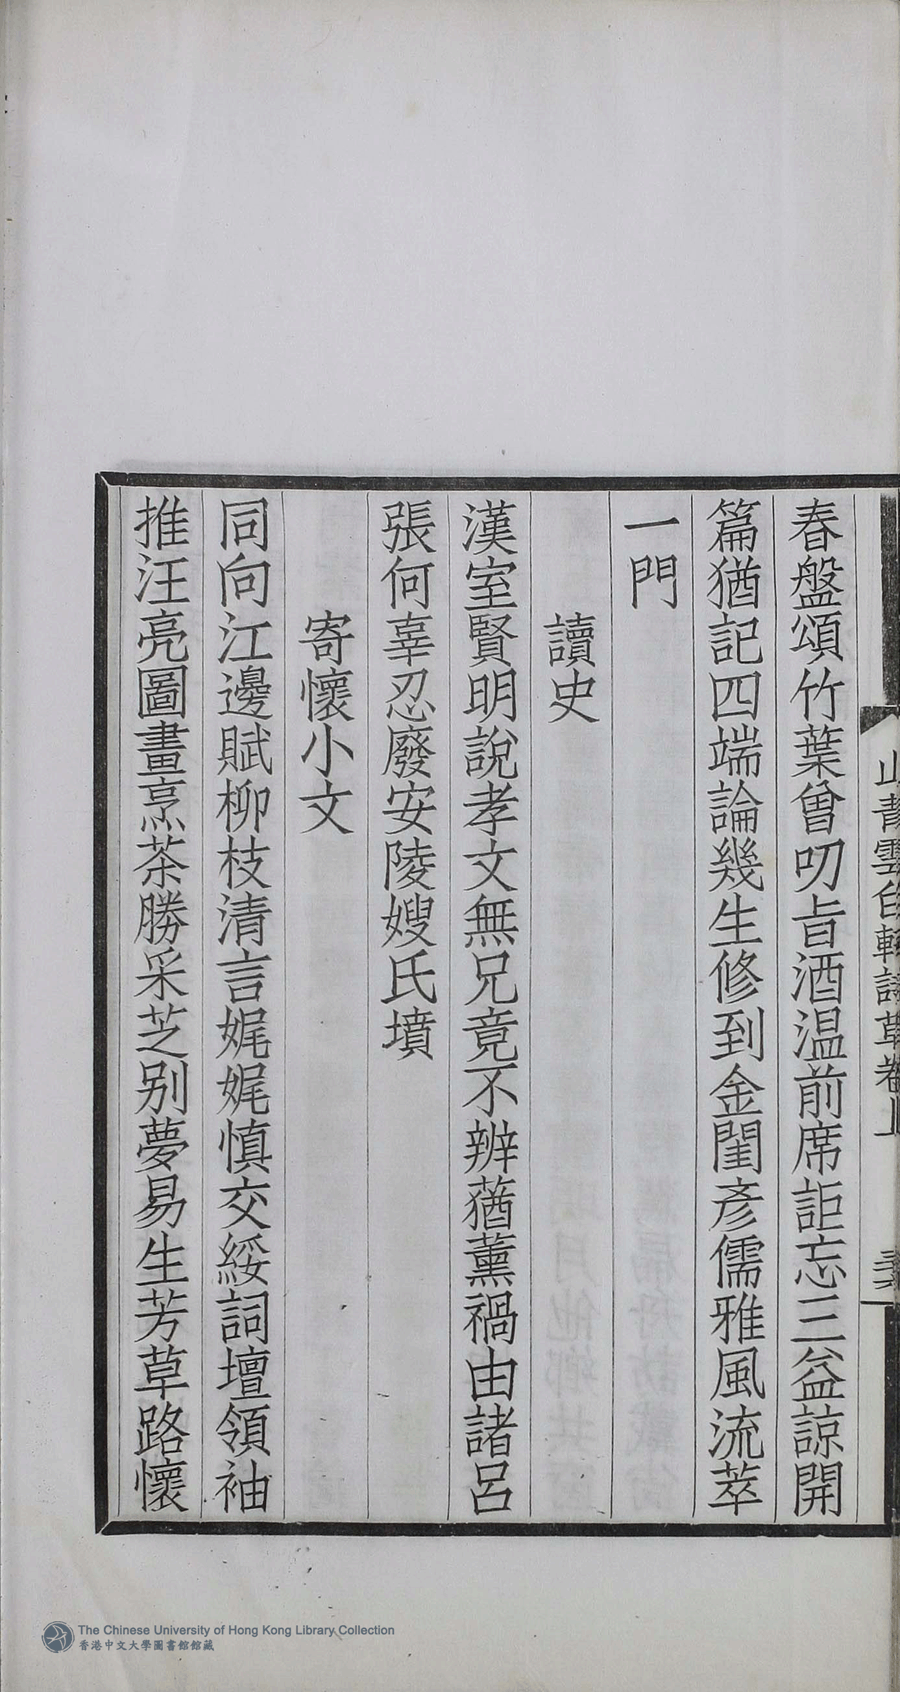 春盤頌竹葉曾叨旨酒温前席詎忘三益諒開
篇猶記四端論幾生修到金閨彥儒雅風流萃
一門
讀史
漢室賢明說孝文無兄竟不辨蕕薰禍由諸呂
張何辜忍廢安陵嫂氏墳
寄懷小文
同向江邊賦柳枝清言娓娓慎交綏詞壇領袖
推汪亮圖畫烹茶勝采芝别夢易生芳草路懷
The Chinese University of Hong Kong Library Collection
香港中文大學圖書館館藏